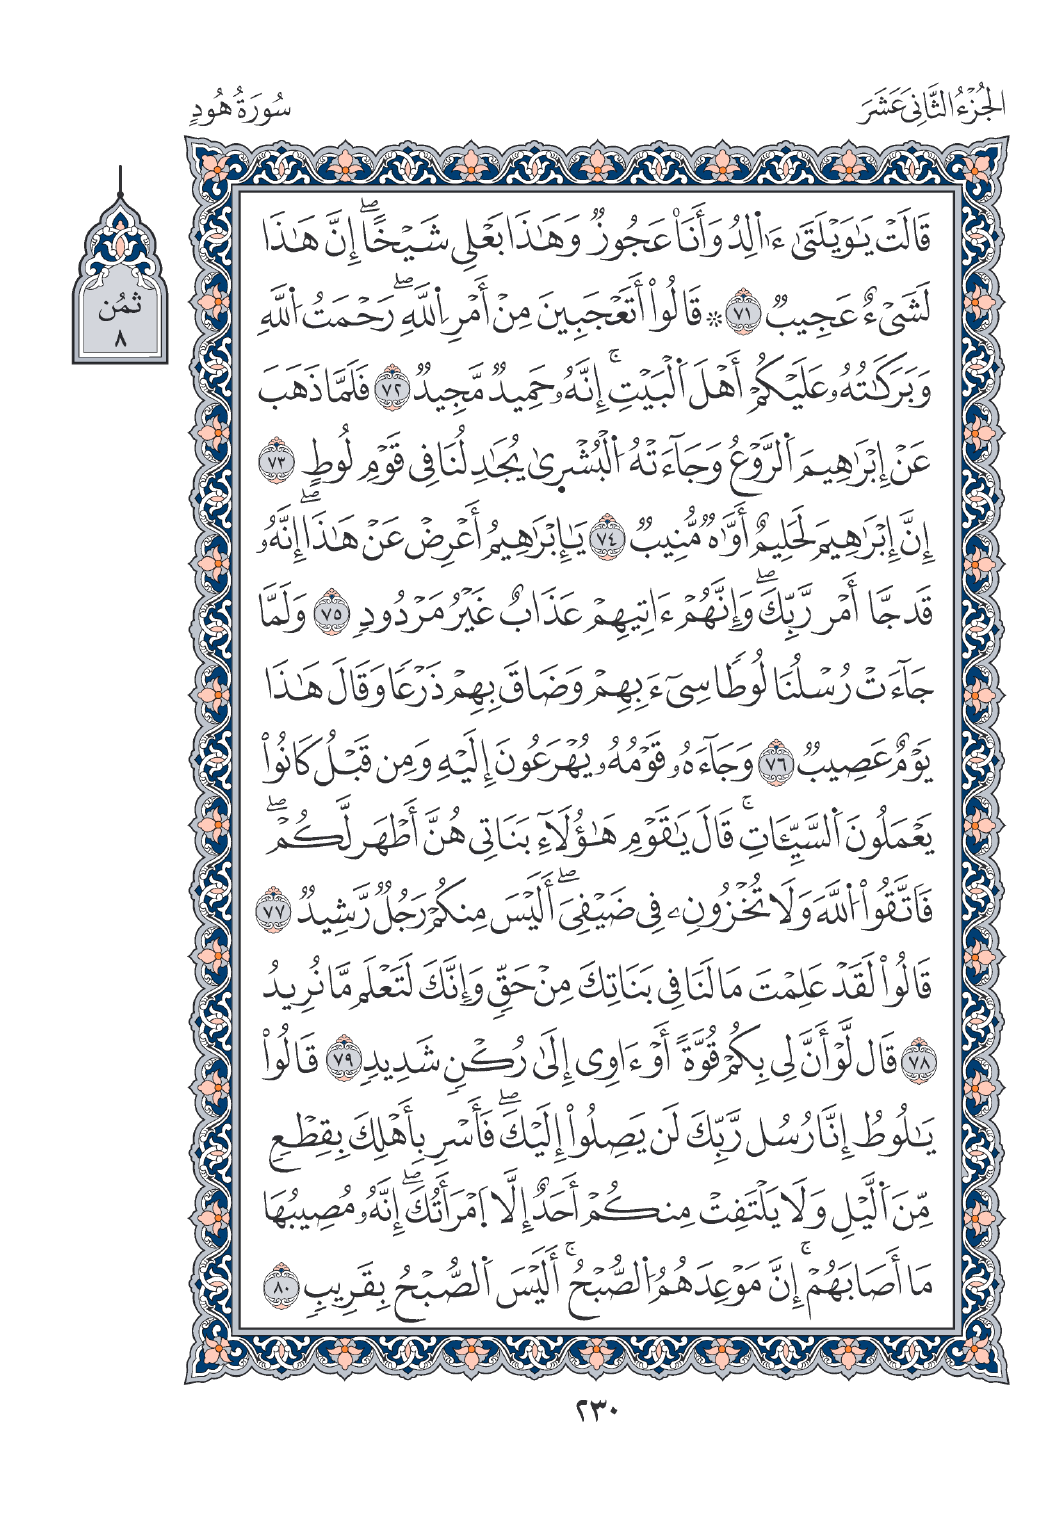 الجُزْءُ الثَّانِي عَشَرَ
سُورَةُ هُودٍ
ثُمُن
٨
قَالَتْ يَـٰوَيْلَتَىٰ ءَا۬لِدُ وَأَنَا۠ عَجُوزٌ وَهَـٰذَا بَعْلِي شَيْخًاۖ إِنَّ هَـٰذَا
لَشَىْءٌ عَجِيبٌ ٧١ ۞ قَالُوٓاْ أَتَعْجَبِينَ مِنْ أَمْرِ اِ۬للَّهِۖ رَحْمَتُ اُ۬للَّهِ
وَبَرَكَـٰتُهُۥ عَلَيْكُمْ أَهْلَ اَ۬لْبَيْتِۚ إِنَّهُۥ حَمِيدٌ مَّجِيدٌ ٧٢ فَلَمَّا ذَهَبَ
عَنْ إِبْرَٰهِيمَ اَ۬لرَّوْعُ وَجَآءَتْهُ اُ۬لْبُشْرِىٰ يُجَـٰدِلُنَا فِي قَوْمِ لُوطٍ ٧٣
إِنَّ إِبْرَٰهِيمَ لَحَلِيمٌ أَوَّٰهٌ مُّنِيبٌ ٧٤ يَـٰٓإِبْرَٰهِيمُ أَعْرِضْ عَنْ هَـٰذَاۖ إِنَّهُۥ
قَد جَّا أَمْر رَّبِّكَۖ وَإِنَّهُمْ ءَاتِيهِمْ عَذَابٌ غَيْرُ مَرْدُودٍ ٧٥ وَلَمَّا
جَآءَتْ رُسْلُنَا لُوطًا سِيٓءَ بِهِمْ وَضَاقَ بِهِمْ ذَرْعًا وَقَالَ هَـٰذَا
يَوْمٌ عَصِيبٌ ٧٦ وَجَآءَهُۥ قَوْمُهُۥ يُهْرَعُونَ إِلَيْهِ وَمِن قَبْلُ كَانُواْ
يَعْمَلُونَ اَ۬لسَّيِّـَٔاتِۚ قَالَ يَـٰقَوْمِ هَـٰٓؤُلَآءِ بَنَاتِي هُنَّ أَطْهَر لَّكُمْۖ
فَاتَّقُواْ اُ۬للَّهَ وَلَا تُخْزُونِۦ فِي ضَيْفِيَۖ أَلَيْسَ مِنكُمْ رَجُلٌ رَّشِيدٌ ٧٧
قَالُواْ لَقَدْ عَلِمْتَ مَا لَنَا فِي بَنَاتِكَ مِنْ حَقٍّ وَإِنَّكَ لَتَعْلَم مَّا نُرِيدُ
٧٨ قَال لَّوْ أَنَّ لِي بِكُمْ قُوَّةً أَوْ ءَاوِي إِلَىٰ رُكْنٍ شَدِيدٍ ٧٩ قَالُواْ
يَـٰلُوطُ إِنَّا رُسُل رَّبِّكَ لَن يَصِلُوٓاْ إِلَيْكَۖ فَأَسْرِ بِأَهْلِكَ بِقِطْعٍ
مِّنَ اَ۬لَّيْلِ وَلَا يَلْتَفِتْ مِنكُمْ أَحَدٌ إِلَّا اَ۪مْرَأَتُكَۖ إِنَّهُۥ مُصِيبُهَا
مَا أَصَابَهُمْۚ إِنَّ مَوْعِدَهُمُ اُ۬لصُّبْحُۚ أَلَيْسَ اَ۬لصُّبْحُ بِقَرِيبٍ ٨٠
٢٣٠